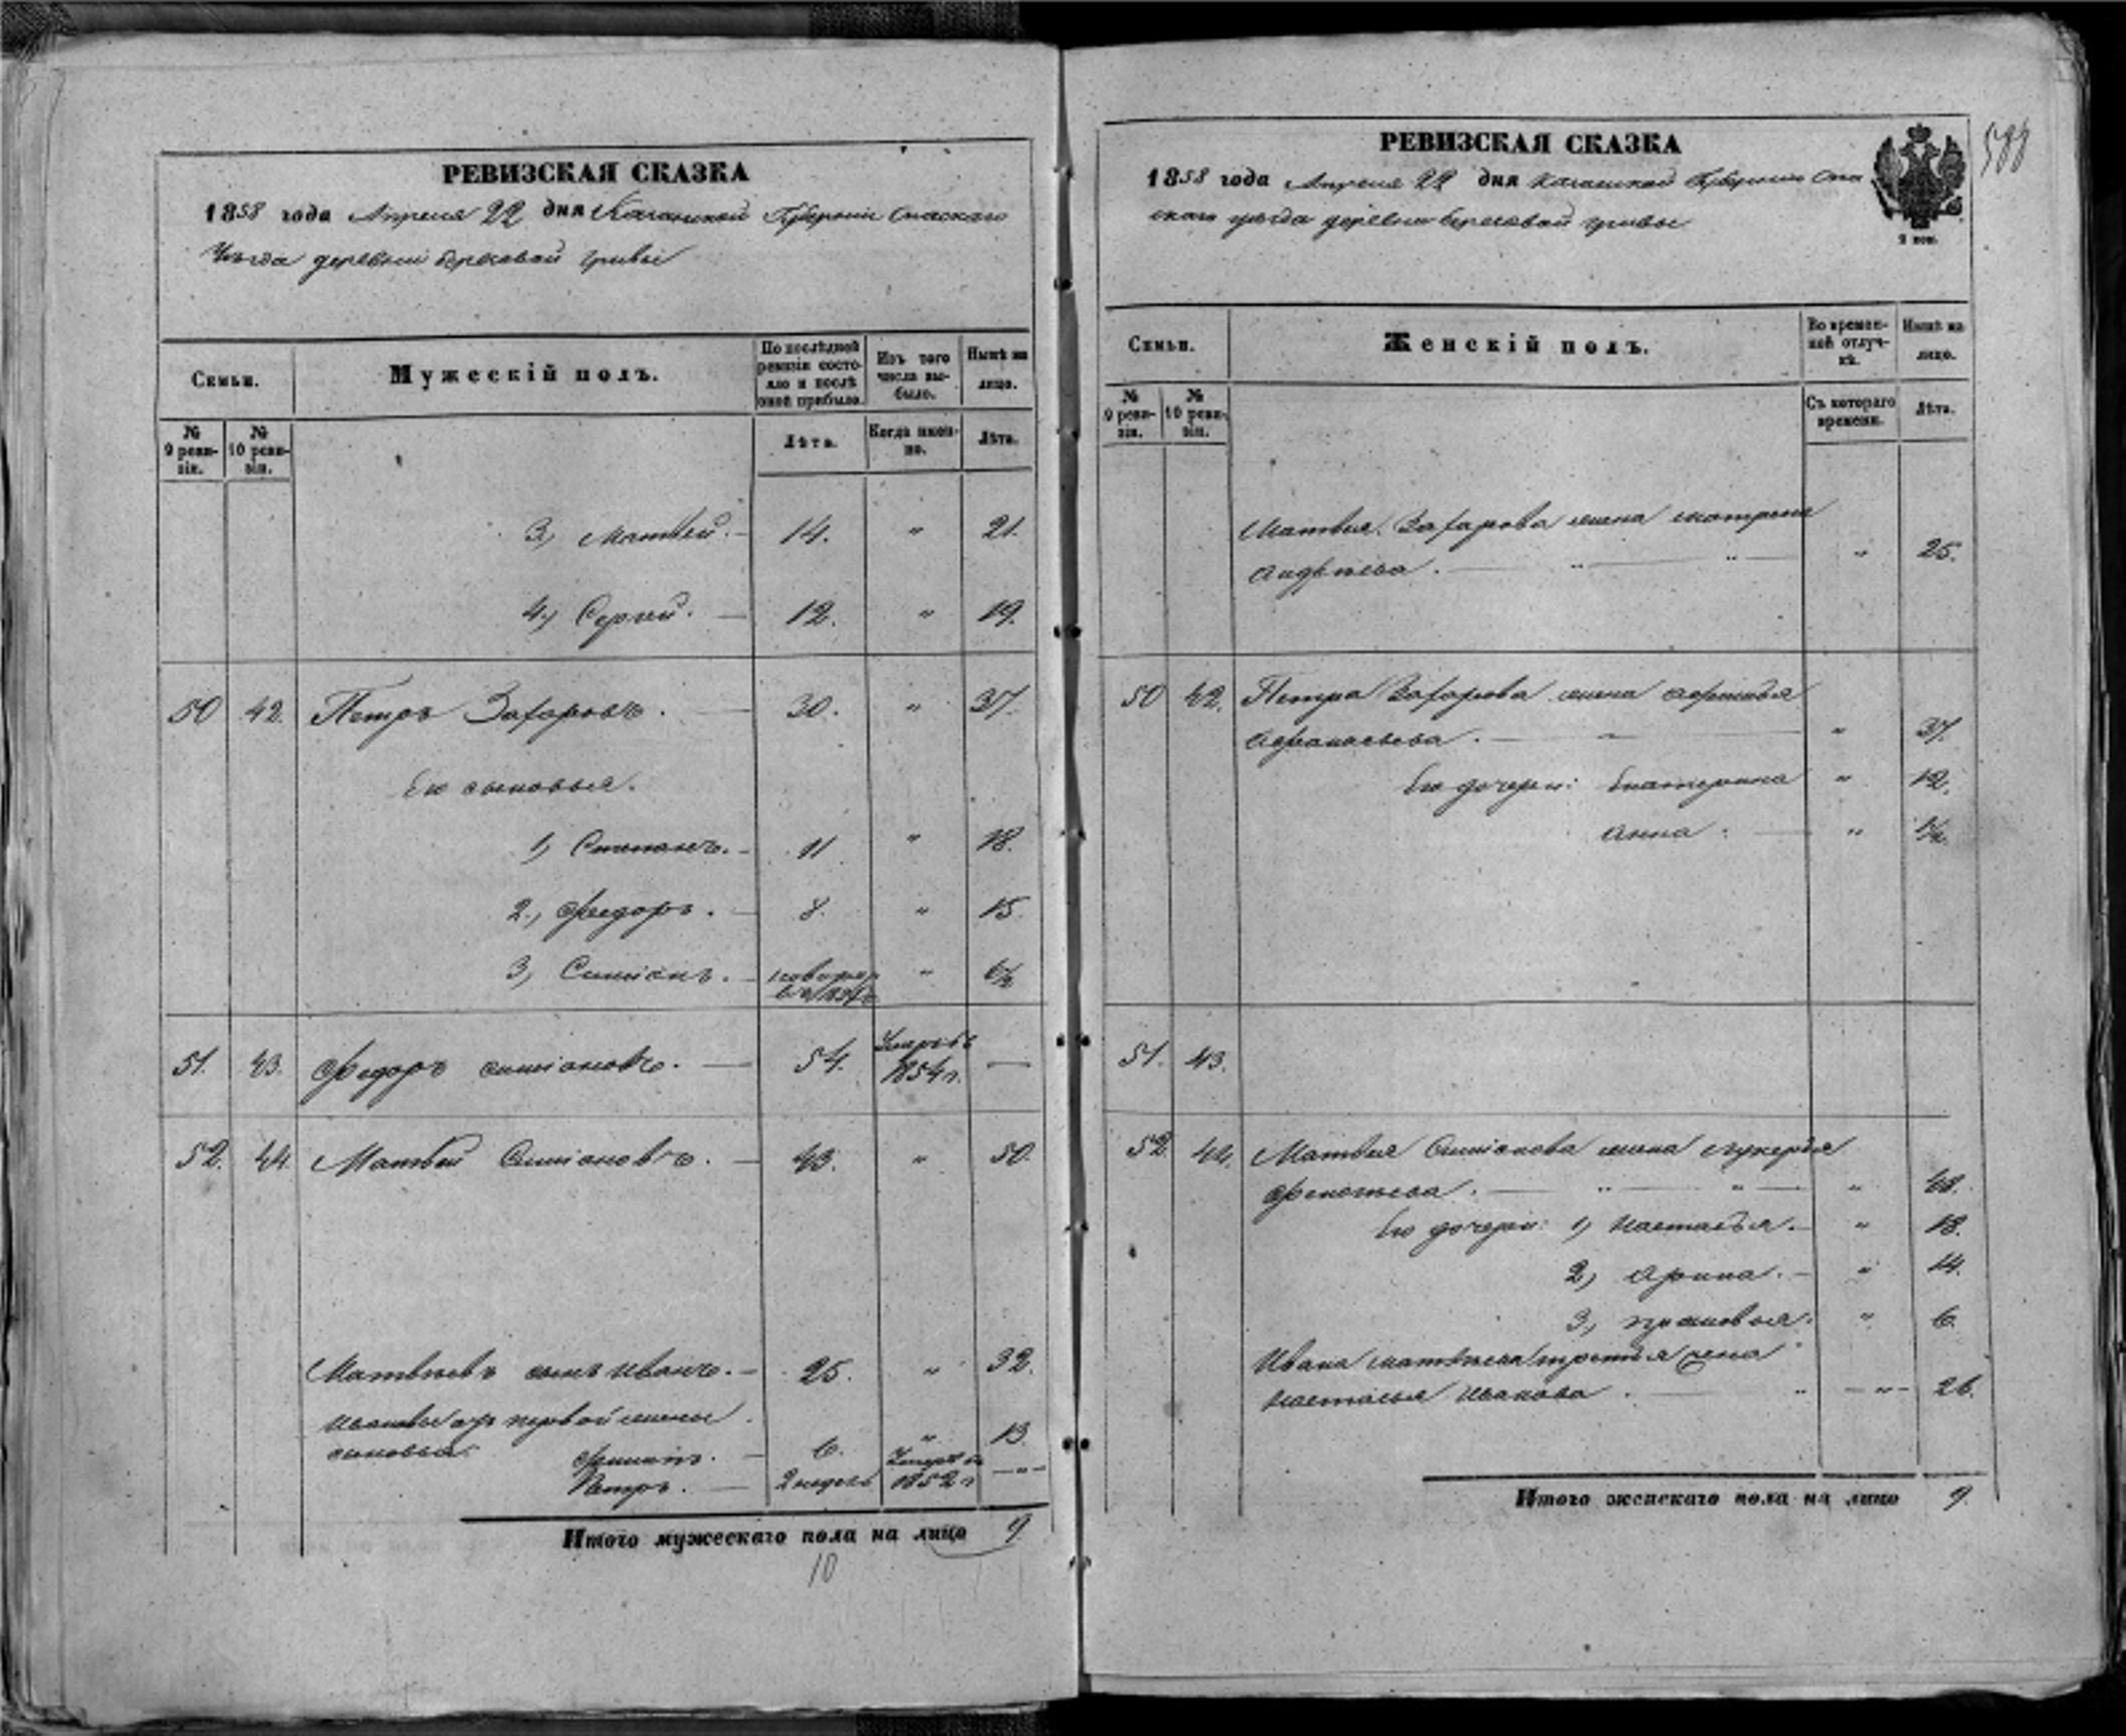 РЕВИЗСКАЯ СКАЗКА
1858 года Апреля 22 дня Казанской Губернии Спаскаго
Уѣзда деревни березовой гривы
Семьи.
Мужескій полъ.
По послѣдней ревизіи состояло и послѣ оной прибыло.
Изъ того числа выбыло.
Нынѣ на лицо.
№ 9 ревизіи.
№ 10 ревизіи.
Лѣта.
Когда именно.
Лѣта.
3, Матвей. 14. " 21.
4, Сергей. 12. " 19.
50 42. Петръ Захаровъ. 30. " 37.
Его сыновья.
1, Степанъ. 11 " 18.
2, Федоръ. 8. " 15.
3, Симіонъ. " 6½
51. 43. Федоръ Симіоновъ. 54. Умръ въ 1854 г. —
52. 44. Матвей Симіоновъ. 43. " 50.
Матвѣевъ сынъ Иванъ. 25. " 32.
Ивановы отъ первой жены
сыновья: 6. " 13.
Петръ. 2 недель Умеръ въ 1852 г. — " —
Итого мужескаго пола на лицо 9.
10
РЕВИЗСКАЯ СКАЗКА
1858 года Апреля 22 дня Казанской Губерніи Спа
скаго уѣзда деревни березовой гривы
2 коп.
Семьи.
Женскій полъ.
Во временной отлучкѣ.
Нынѣ на лицо.
№ 9 ревизіи.
№ 10 ревизіи.
Съ котораго времени.
Лѣта.
Матвея Захарова жена матрена
авдѣева. " 25.
50 42. Петра Захарова жена
афанасьева. " 37.
Его дочери: Екатерина " 12.
Анна. " 1½
51. 43.
52. 44. Матвея Симіонова жена лукерья
"
Его дочери: 1, Настасья. " 18.
2, Арина. " 14.
3, прасковья. " 6.
Ивана матвѣева третья жена
настасья Иванова. " 26.
Итого женскаго пола на лицо 9.